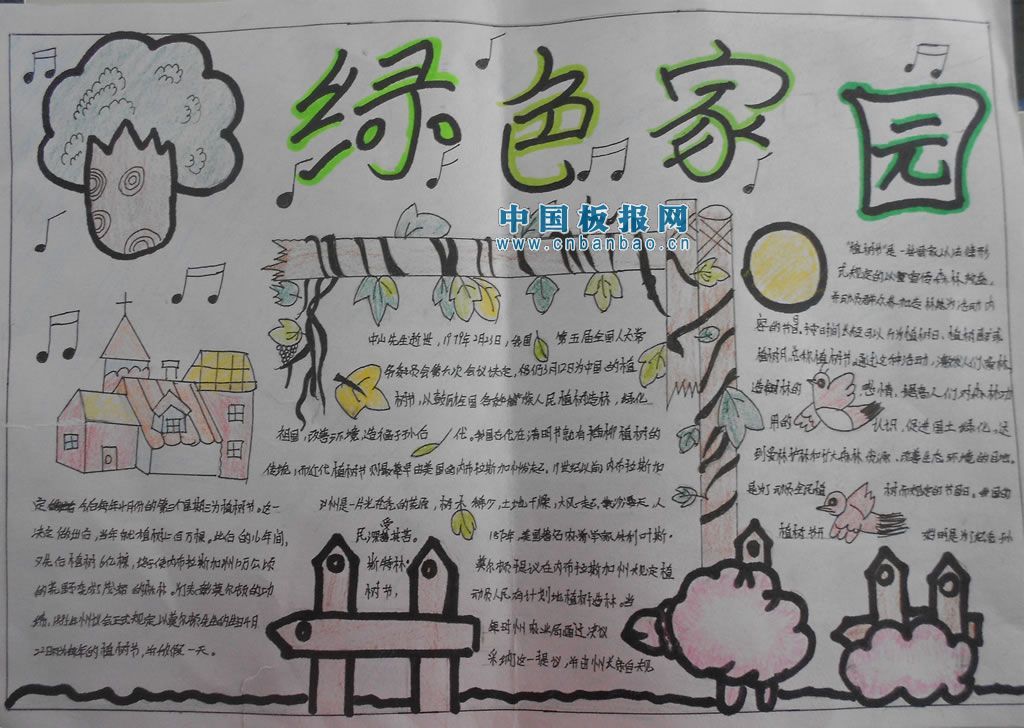 绿色家园
中国板报网
www.cnbanbao.cn
"植树节"是一些国家以法律形
式规定的以宣传森林效益,
并动员群众参加造林为活动内
容的节日。
植树月,总称植树节。通过这种活动,激发人们爱林、
造林的感情,提高人们对森林功
用的认识,促进国土绿化,达
到爱林护林和扩大森林资源、改善生态环境的目的。
是为了动员全民植树而规定的节日。中国的
植树节
中山先生逝世,1979年2月23日,我国第五届全国人大常
务委员会第六次会议决定,仍以3月12日为中国的植
树节,以鼓励全国各族人民植树造林,绿化
祖国,改善环境,造福子孙后代。我国古代在清明节就有插柳植树的
传统,而近代植树节则最早由美国的内布拉斯加州发起。19世纪以前,内布拉斯加
州是一片光秃秃的荒原,树木稀少,土地干燥,大风一起,黄沙满天,人
民深受其苦。1872年,美国著名农学家朱利叶斯·
斯特林·莫尔顿提议在内布拉斯加州规定植
树节,动员人民有计划地植树造林。当
时州农业局通过决议
采纳这一提议,并由州长亲自规
定今后每年4月份的第三个星期三为植树节。这一
决定做出后,当年就植树上百万棵。此后的16年间,
又先后植树6亿棵,终于使内布拉斯加州10万公顷
的荒野变成了茂密的森林。为表彰莫尔顿的功
绩,州议会正式规定以莫尔顿先生的生日4月
22日为每年的植树节,并放假一天。